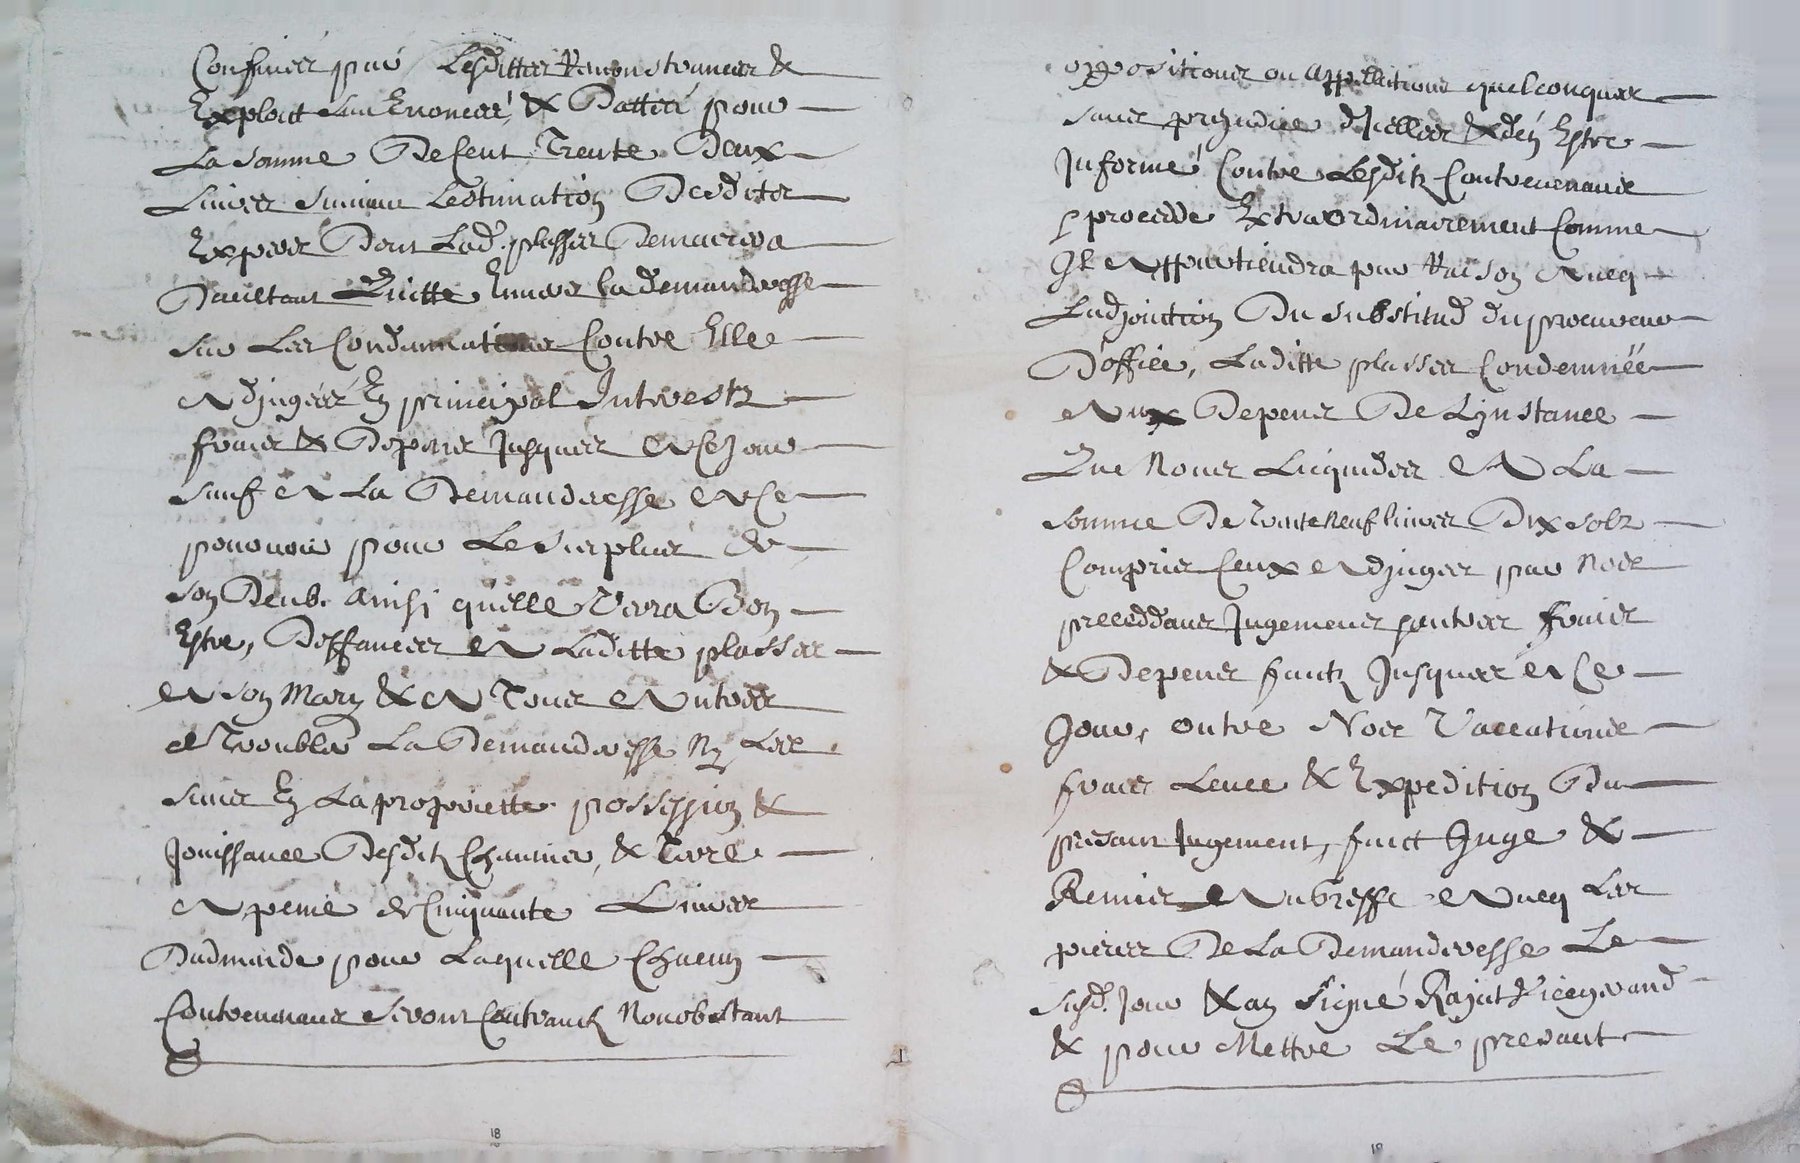 Confinés par Lesdittes Remonstrances &
Exploit sus Enoncés, & Dattés pour
La somme De Cent Trente Deux
Livres suivant Lestimation Desdits
Expers Dont Lad. plasses Demeurera
Daultant Quitte Envers la demanderesse
sur Les Condamnations Contre Elle
Adjugées En principal Interestz
frais & Depens Jusques A Ce Jour
sauf A La Demanderesse A se
pourvoir pour Le surplus de
son Deub. Ainsi quelle Verra Bon
Estre, Deffances A Laditte plasses
A son Mary & A Tous Autres
de Troubler La Demanderesse Ny Les
siens En La proprietté possession &
Jouissance Desditz Chanvier, & Terre
A peine de Cinquante Livres
Dadmande pour Laquelle Chacun
Contrevenans seront Contrainctz Nonobstant
oppositions ou Appellations quelconques
sans prejudice dJcelles & den Estre
Informé Contre Lesditz Contrevenans
& procedde Extraordinairement Comme
Il Appartiendra par Raison Avecq
Ladjonction Du substitud du procureur
D'office, Laditte plasses Condemnée
Aux Depens De Linstance
Que Nous Liquides A La
somme De Trente Neuf livres Dix solz
Compris Ceux Adjuges par Nos
preceddans Jugemens Autres frais
& Depens faitz Jusques A Ce
Jour, outre Nos Vaccations
frais Levee & Expedition Du
presant Jugement, faict Juge &
Remis Au Greffe Avecq Les
pieces De La Demanderesse Le
susd. Jour & an Signé Rajat Vicegerand
& pour Mettre Le presant
18
18